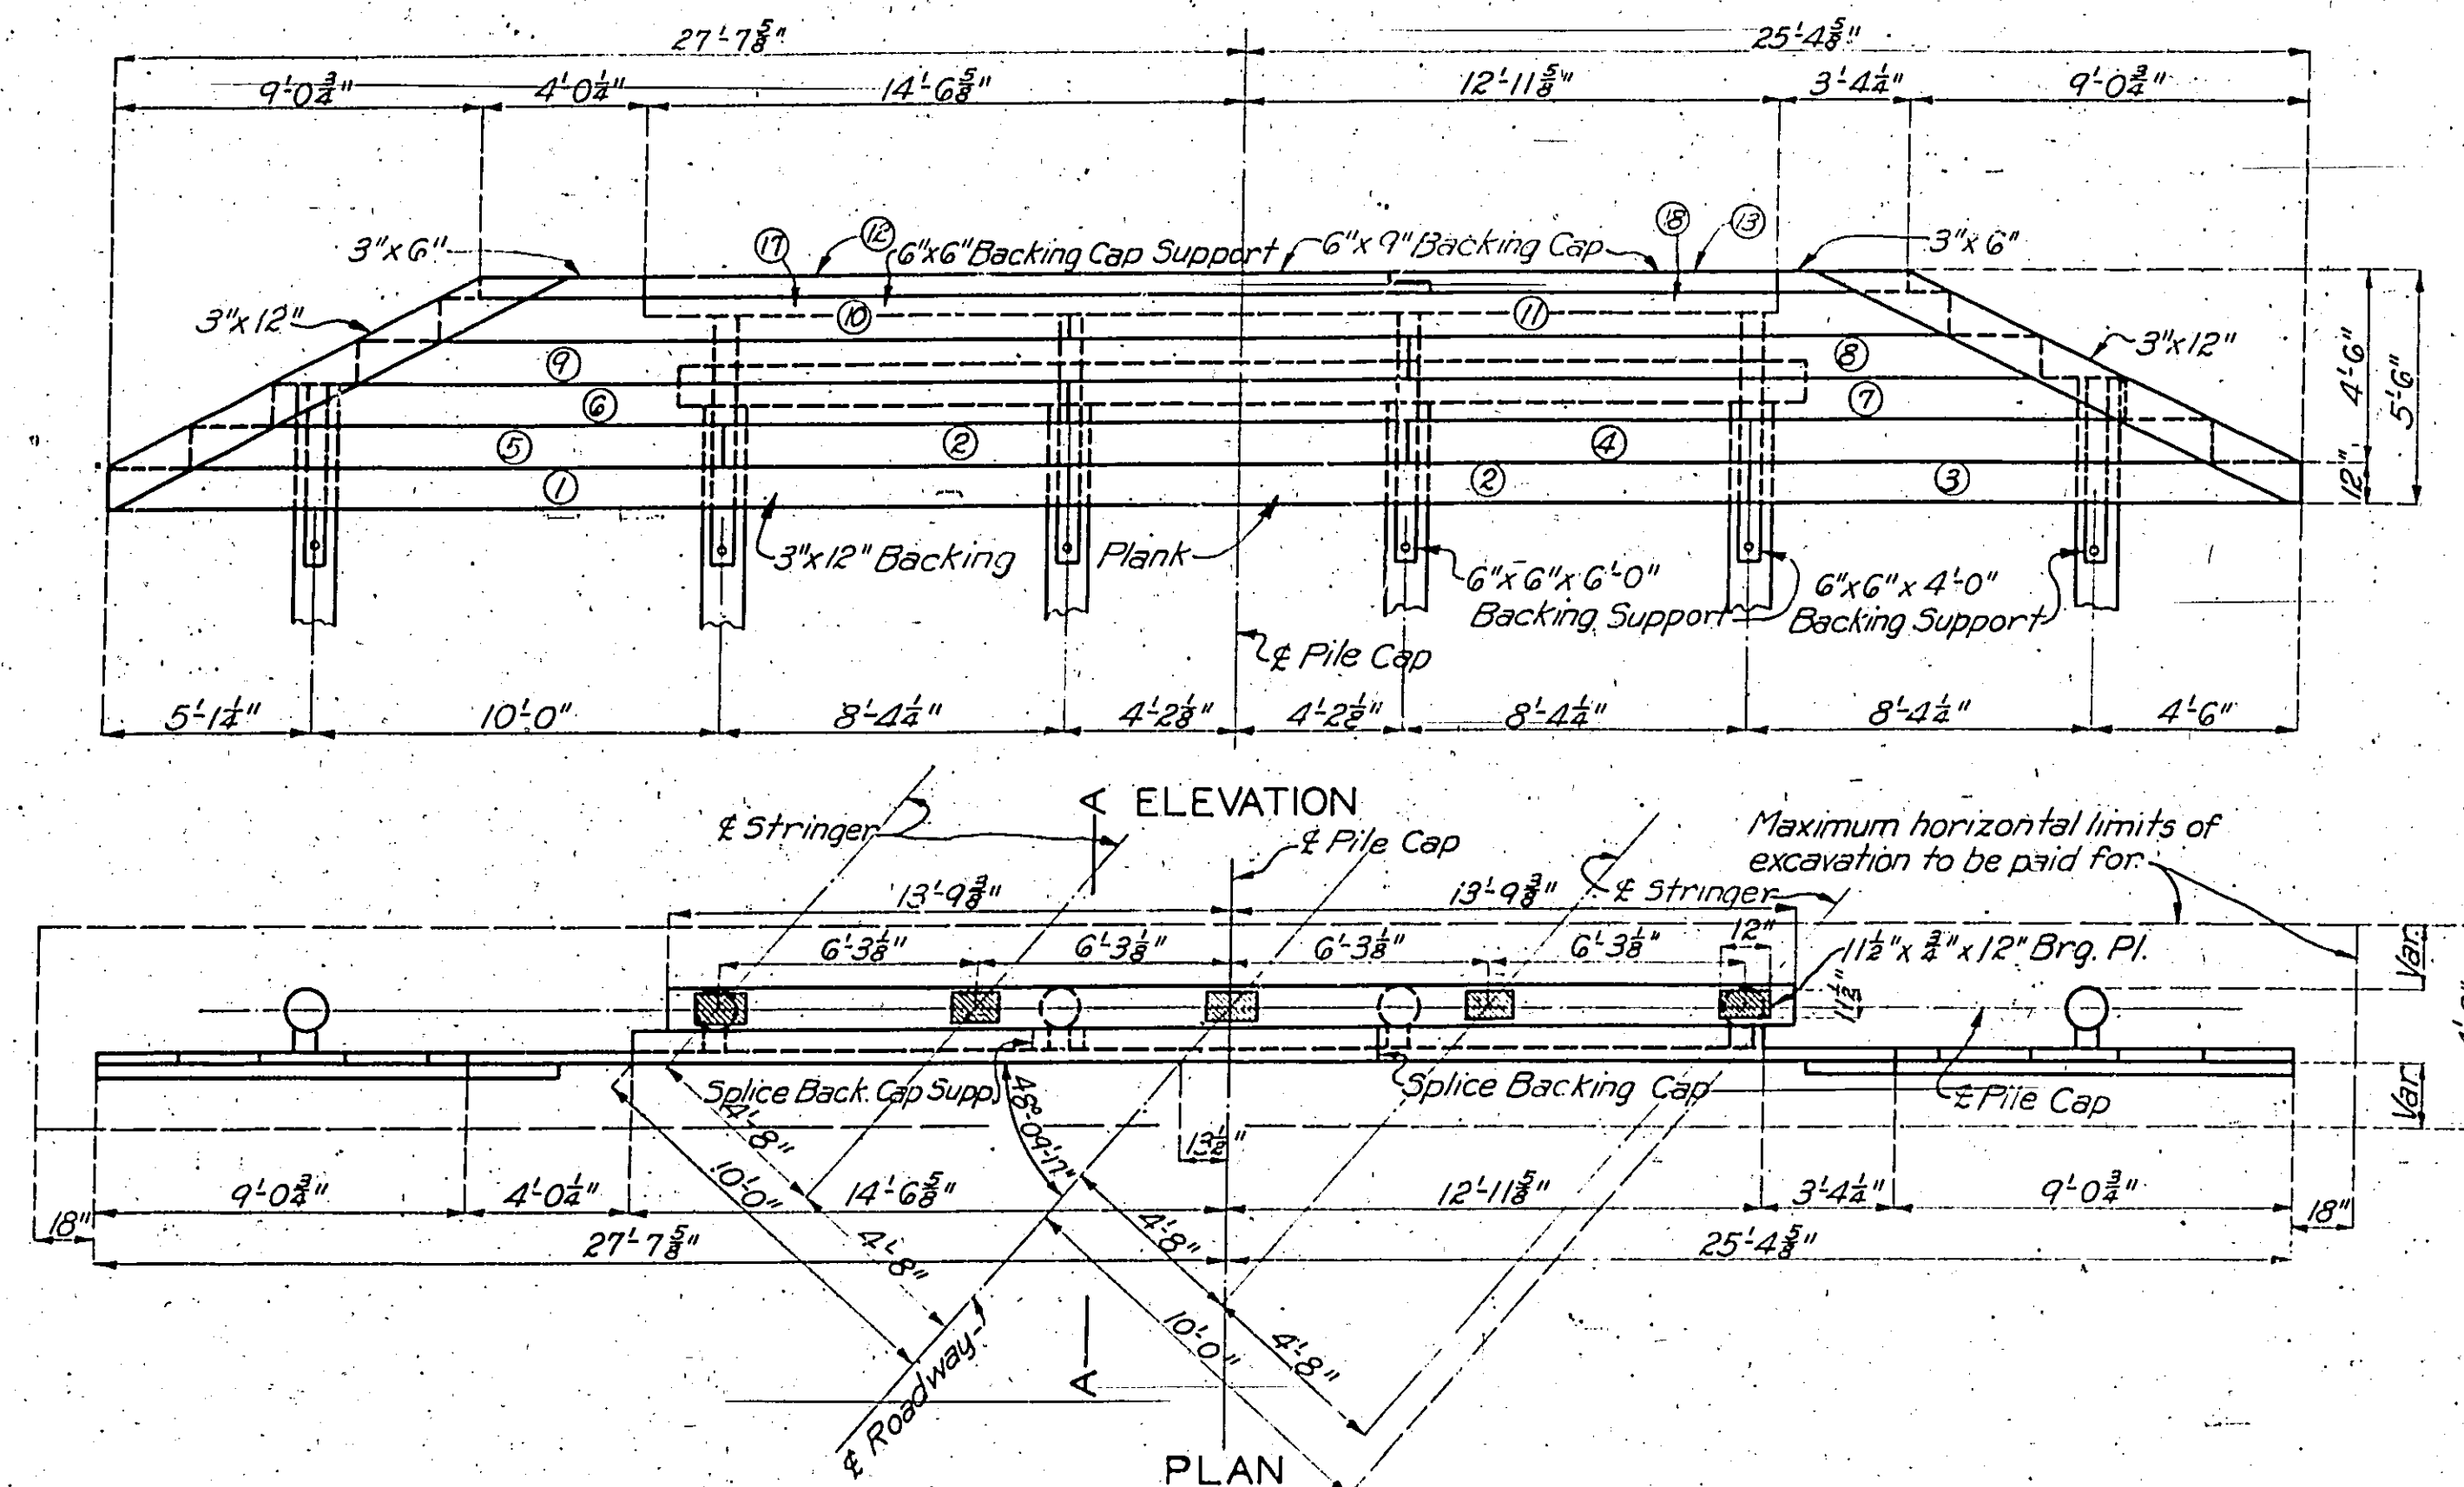 27'-7⅝" 25'-4⅝"
9'-0¾" 4'-0¼" 14'-6⅝" 12'-11⅝" 3'-4¼" 9'-0¾"
3"x6" ⑰ ⑫ 6"x6" Backing Cap Support 6"x9" Backing Cap ⑱ ⑬ 3"x6"
3"x12" ⑩ ⑪ 3"x12"
⑨ ⑧
⑥ ⑦
⑤ ② ④
① ② ③
4'-6" 5'-6"
12"
3"x12" Backing Plank
6"x6"x6'-0"
Backing Support
6"x6"x4'-0"
Backing Support
℄ Pile Cap
5'-1¼" 10'-0" 8'-4¼" 4'-2⅛" 4'-2⅛" 8'-4¼" 8'-4¼" 4'-6"
A ELEVATION
℄ Stringer ℄ Pile Cap
Maximum horizontal limits of
excavation to be paid for.
13'-9⅜" 13'-9⅜" ℄ Stringer
6'-3⅛" 6'-3⅛" 6'-3⅛" 6'-3⅛" 12"
11½"x¾"x12" Brg. Pl.
11½"
Var.
Splice Back. Cap Supp. Splice Backing Cap ℄ Pile Cap
Var.
48°-09'-17"
4'-8" 13⅛"
10'-0"
9'-0¾" 4'-0¼" 14'-6⅝" 12'-11⅝" 3'-4¼" 9'-0¾"
18" 18"
27'-7⅝" 4'-8" 4'-8" 25'-4⅝"
10'-0" 4'-8"
℄ Roadway
A
PLAN